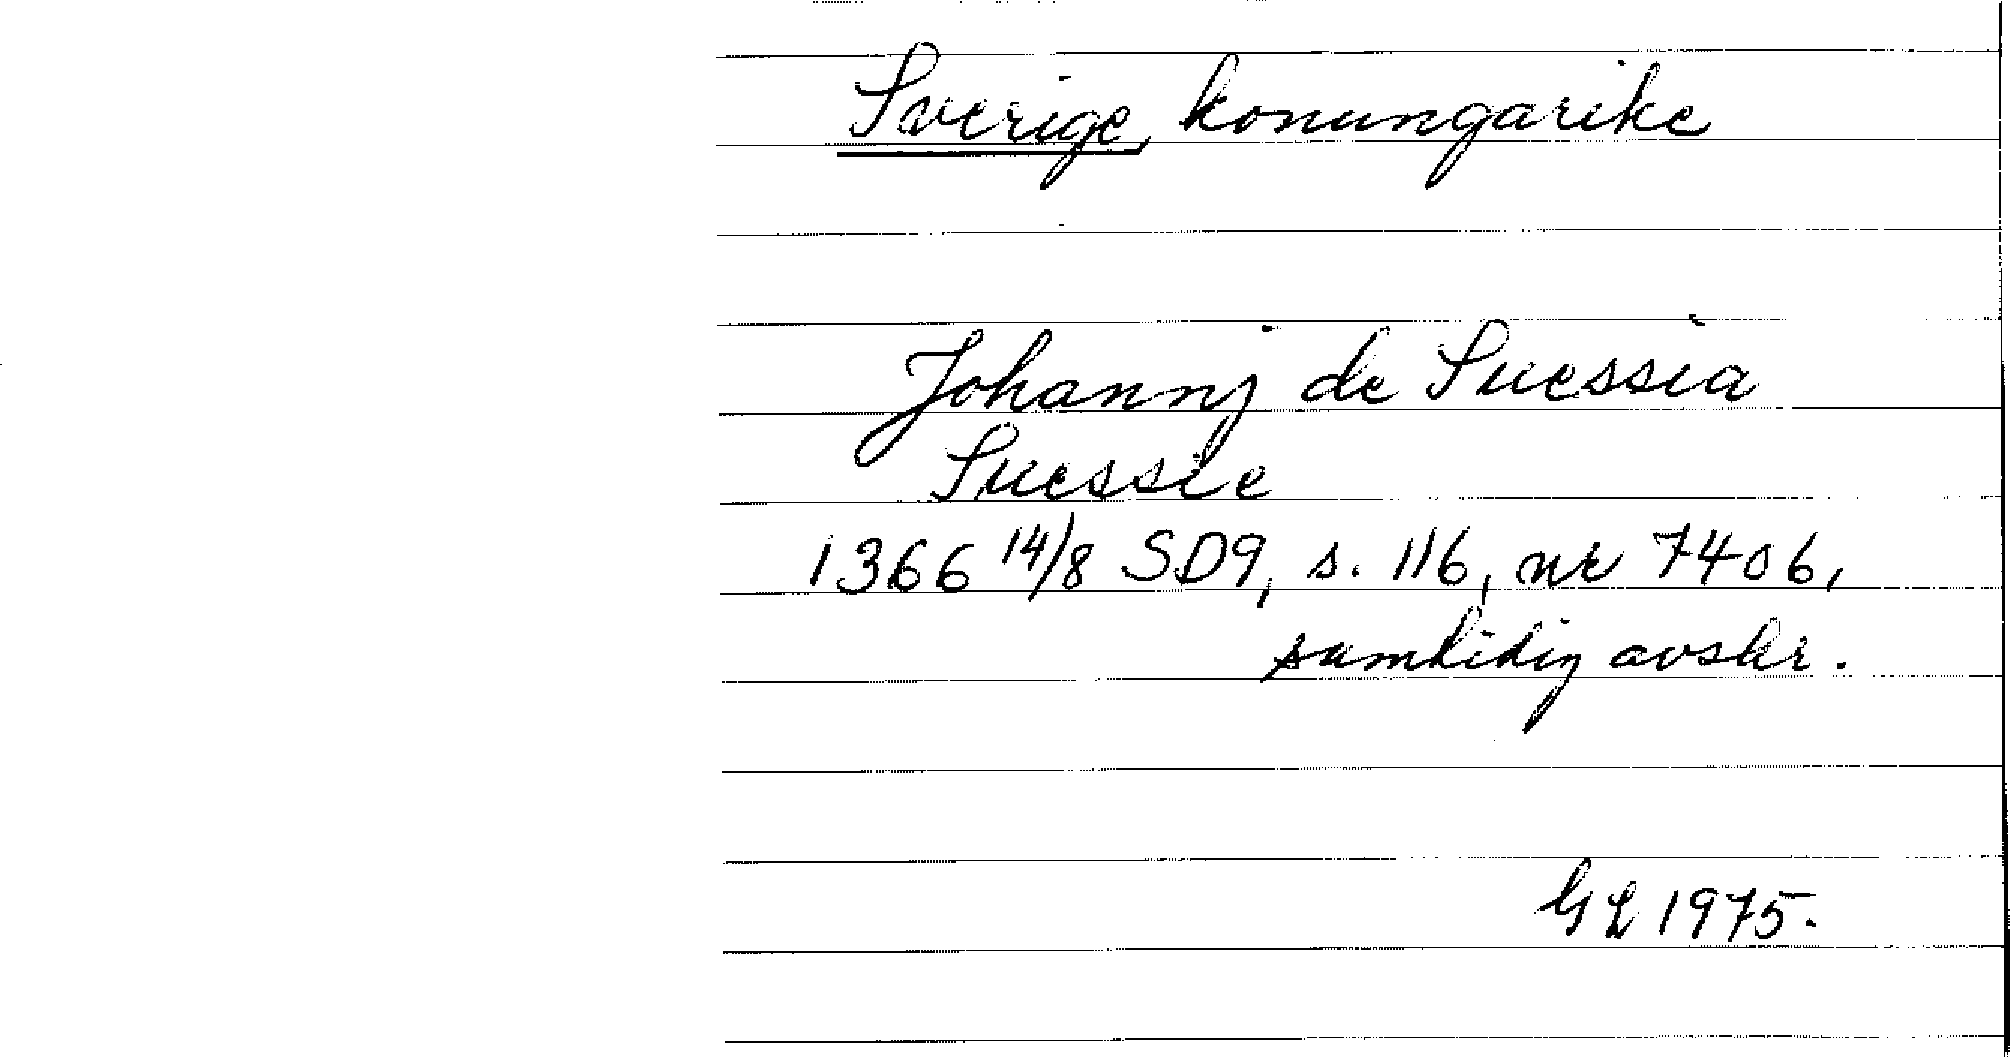 Sverige, konungarike
Johannj de Suessia
Suessie
1366 14/8 SD9, s. 116, nr 7406,
samtidig avskr.
GL 1975.